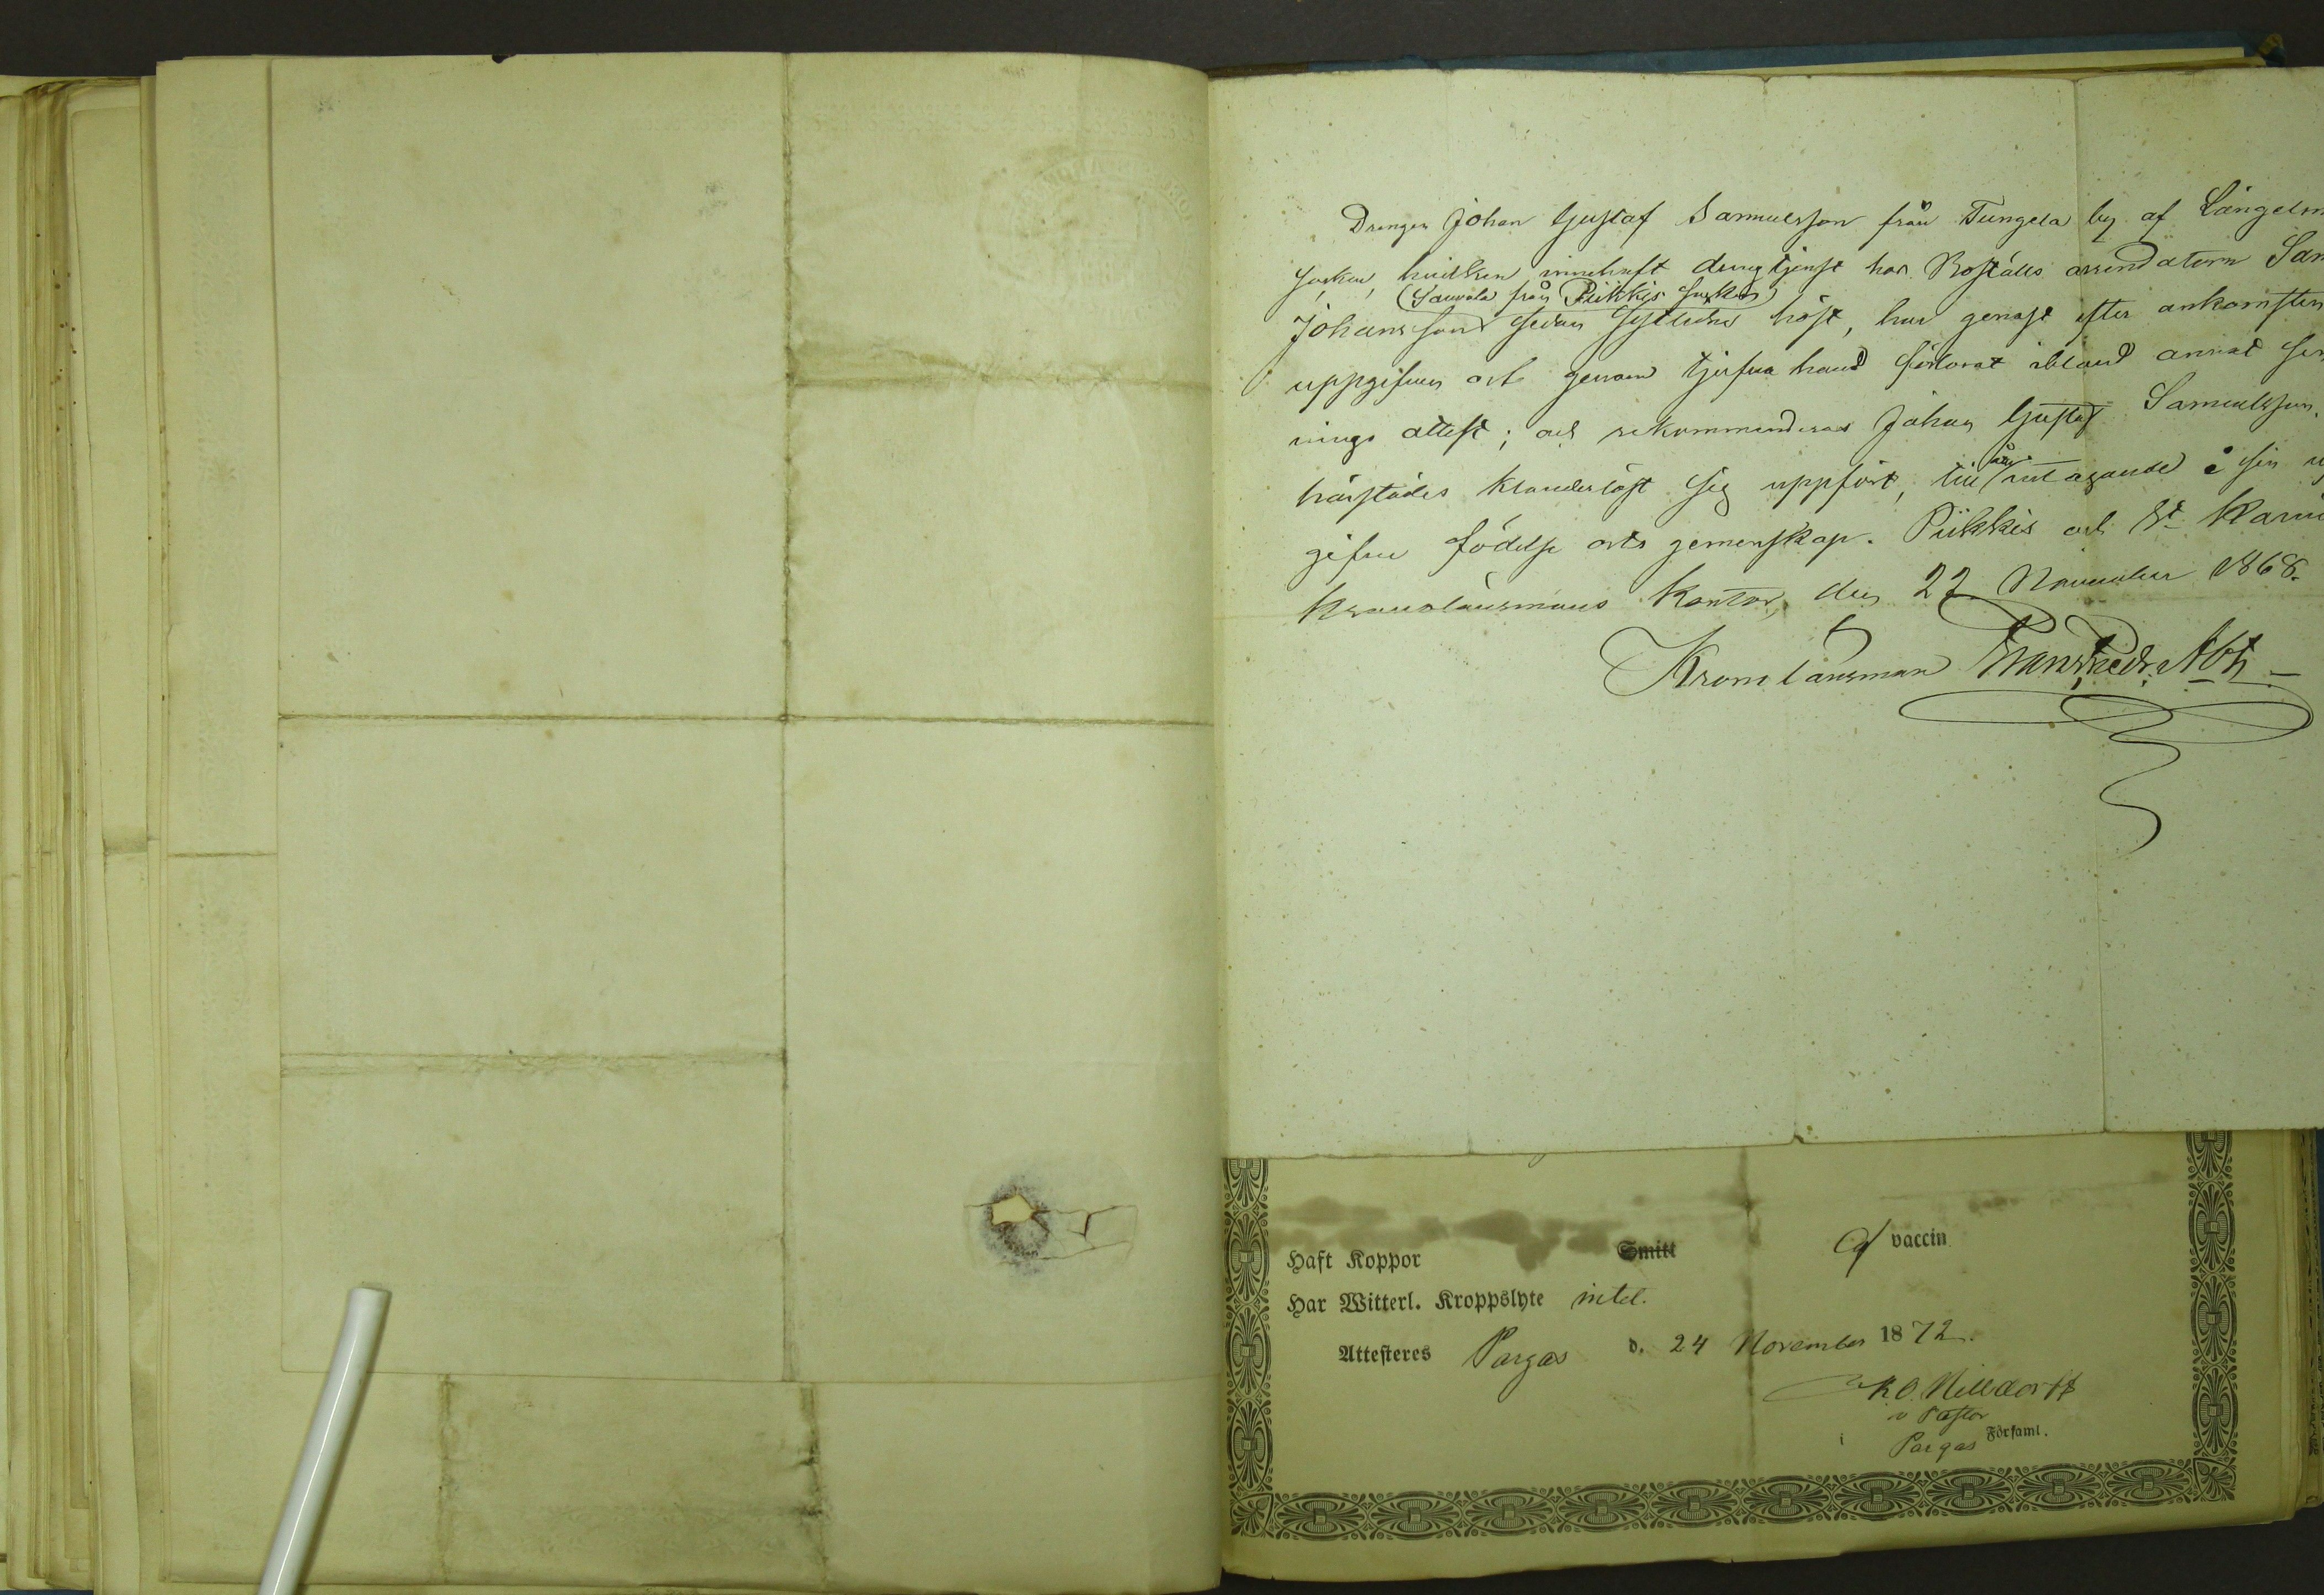 Drengen Johan Gustaf Samuelsson från Tungela by af Längelm
socken, hvilken innehaft drengtjenst hos Boställs arrendatorn Sam
(Sauvala från Piikkis socken)
Johansson sedan sistlidne höst, har genast efter ankomsten
uppgifven ort genom tjufva hand förlorat ibland annat
nings attest; och rekommenderas Johan Gustaf Samuelsson,
härstädes klanderlöst sig uppfört, till intagande i sin
gifne födelse orts gemenskap. Piikkis och St Karin
Kronolänsmans Kontor, den 22 November 1868.
Kronolänsman Frans Fredr.
Haft Koppor Smitt Af vaccin
Har Witterl. Kroppslyte intet.
Attesteres Pargas d. 24 November 1872.
K. O. Nilldorff
v Pastor
i Pargas Församl.